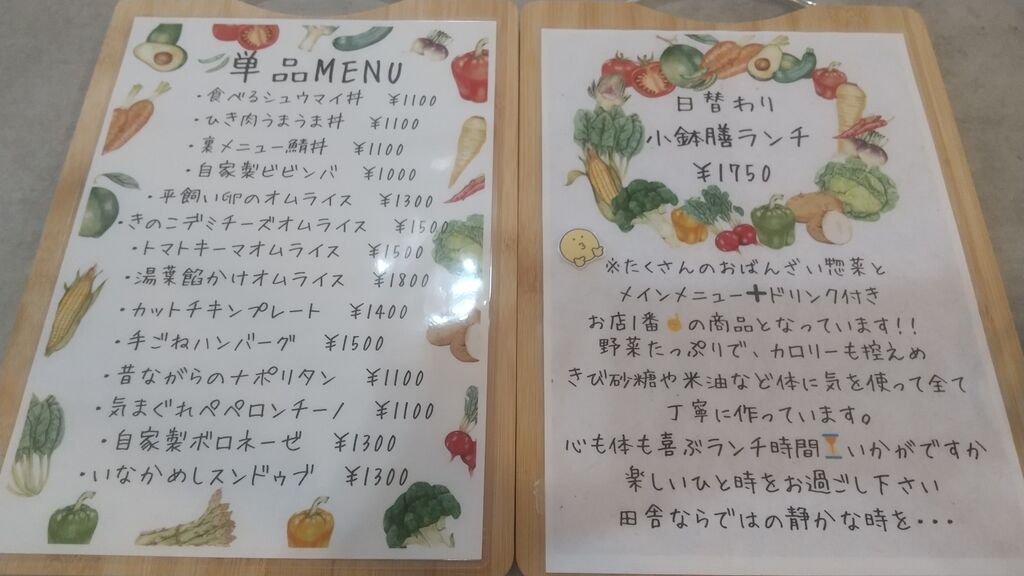 単品MENU
・食べるシュウマイ丼 ¥1100
・ひき肉うまうま丼 ¥1100
・裏メニュー鯖丼 ¥1100
・自家製ビビンバ ¥1000
・平飼い卵のオムライス ¥1300
・きのこデミチーズオムライス ¥1500
・トマトキーマオムライス ¥1500
・湯葉餡かけオムライス ¥1800
・カットチキンプレート ¥1400
・手ごねハンバーグ ¥1500
・昔ながらのナポリタン ¥1100
・気まぐれペペロンチーノ ¥1100
・自家製ボロネーゼ ¥1300
・いなかめしスンドゥブ ¥1300
日替わり
小鉢膳ランチ
¥1750
※たくさんのおばんざい惣菜と
メインメニュー➕ドリンク付き
お店1番☝の商品となっています!!
野菜たっぷりで、カロリーも控えめ
きび砂糖や米油など体に気を使って全て
丁寧に作っています。
心も体も喜ぶランチ時間⏳いかがですか
楽しいひと時をお過ごし下さい
田舎ならではの静かな時を・・・